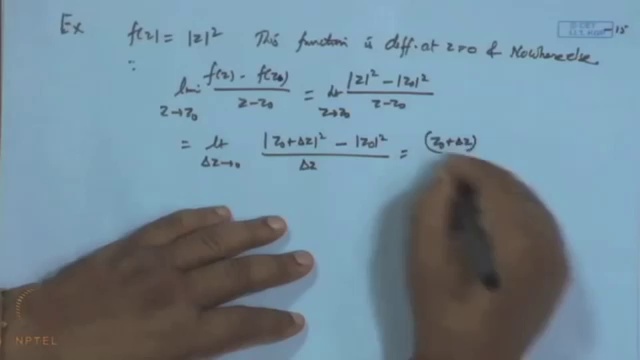 Ex f(z) = |z|² This function is diff. at z=0 & Nowhere else.
∵
lim z→z₀ f(z) - f(z₀) / z - z₀ = lt z→z₀ |z|² - |z₀|² / z - z₀
= lt Δz→0 |z₀+Δz|² - |z₀|² / Δz = (z₀+Δz)
NPTEL